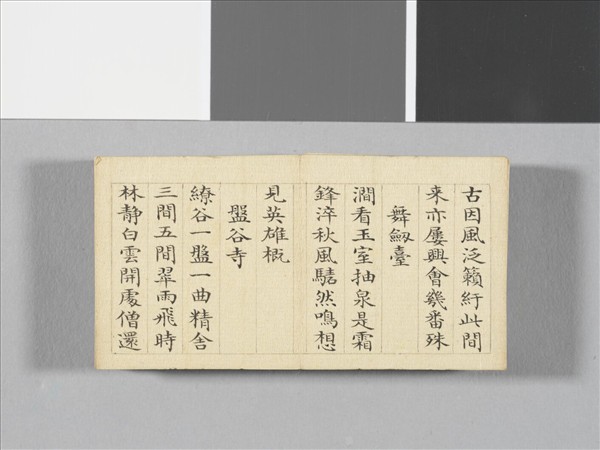 古因風泛籟紆此間
来亦屢興會幾番殊
舞劔臺
澗看玉室抽泉是霜
鋒淬秋風騞然鳴想
見英雄概
盤谷寺
繚谷一盤一曲精舍
三間五間翠雨飛時
林靜白雲開處僧還